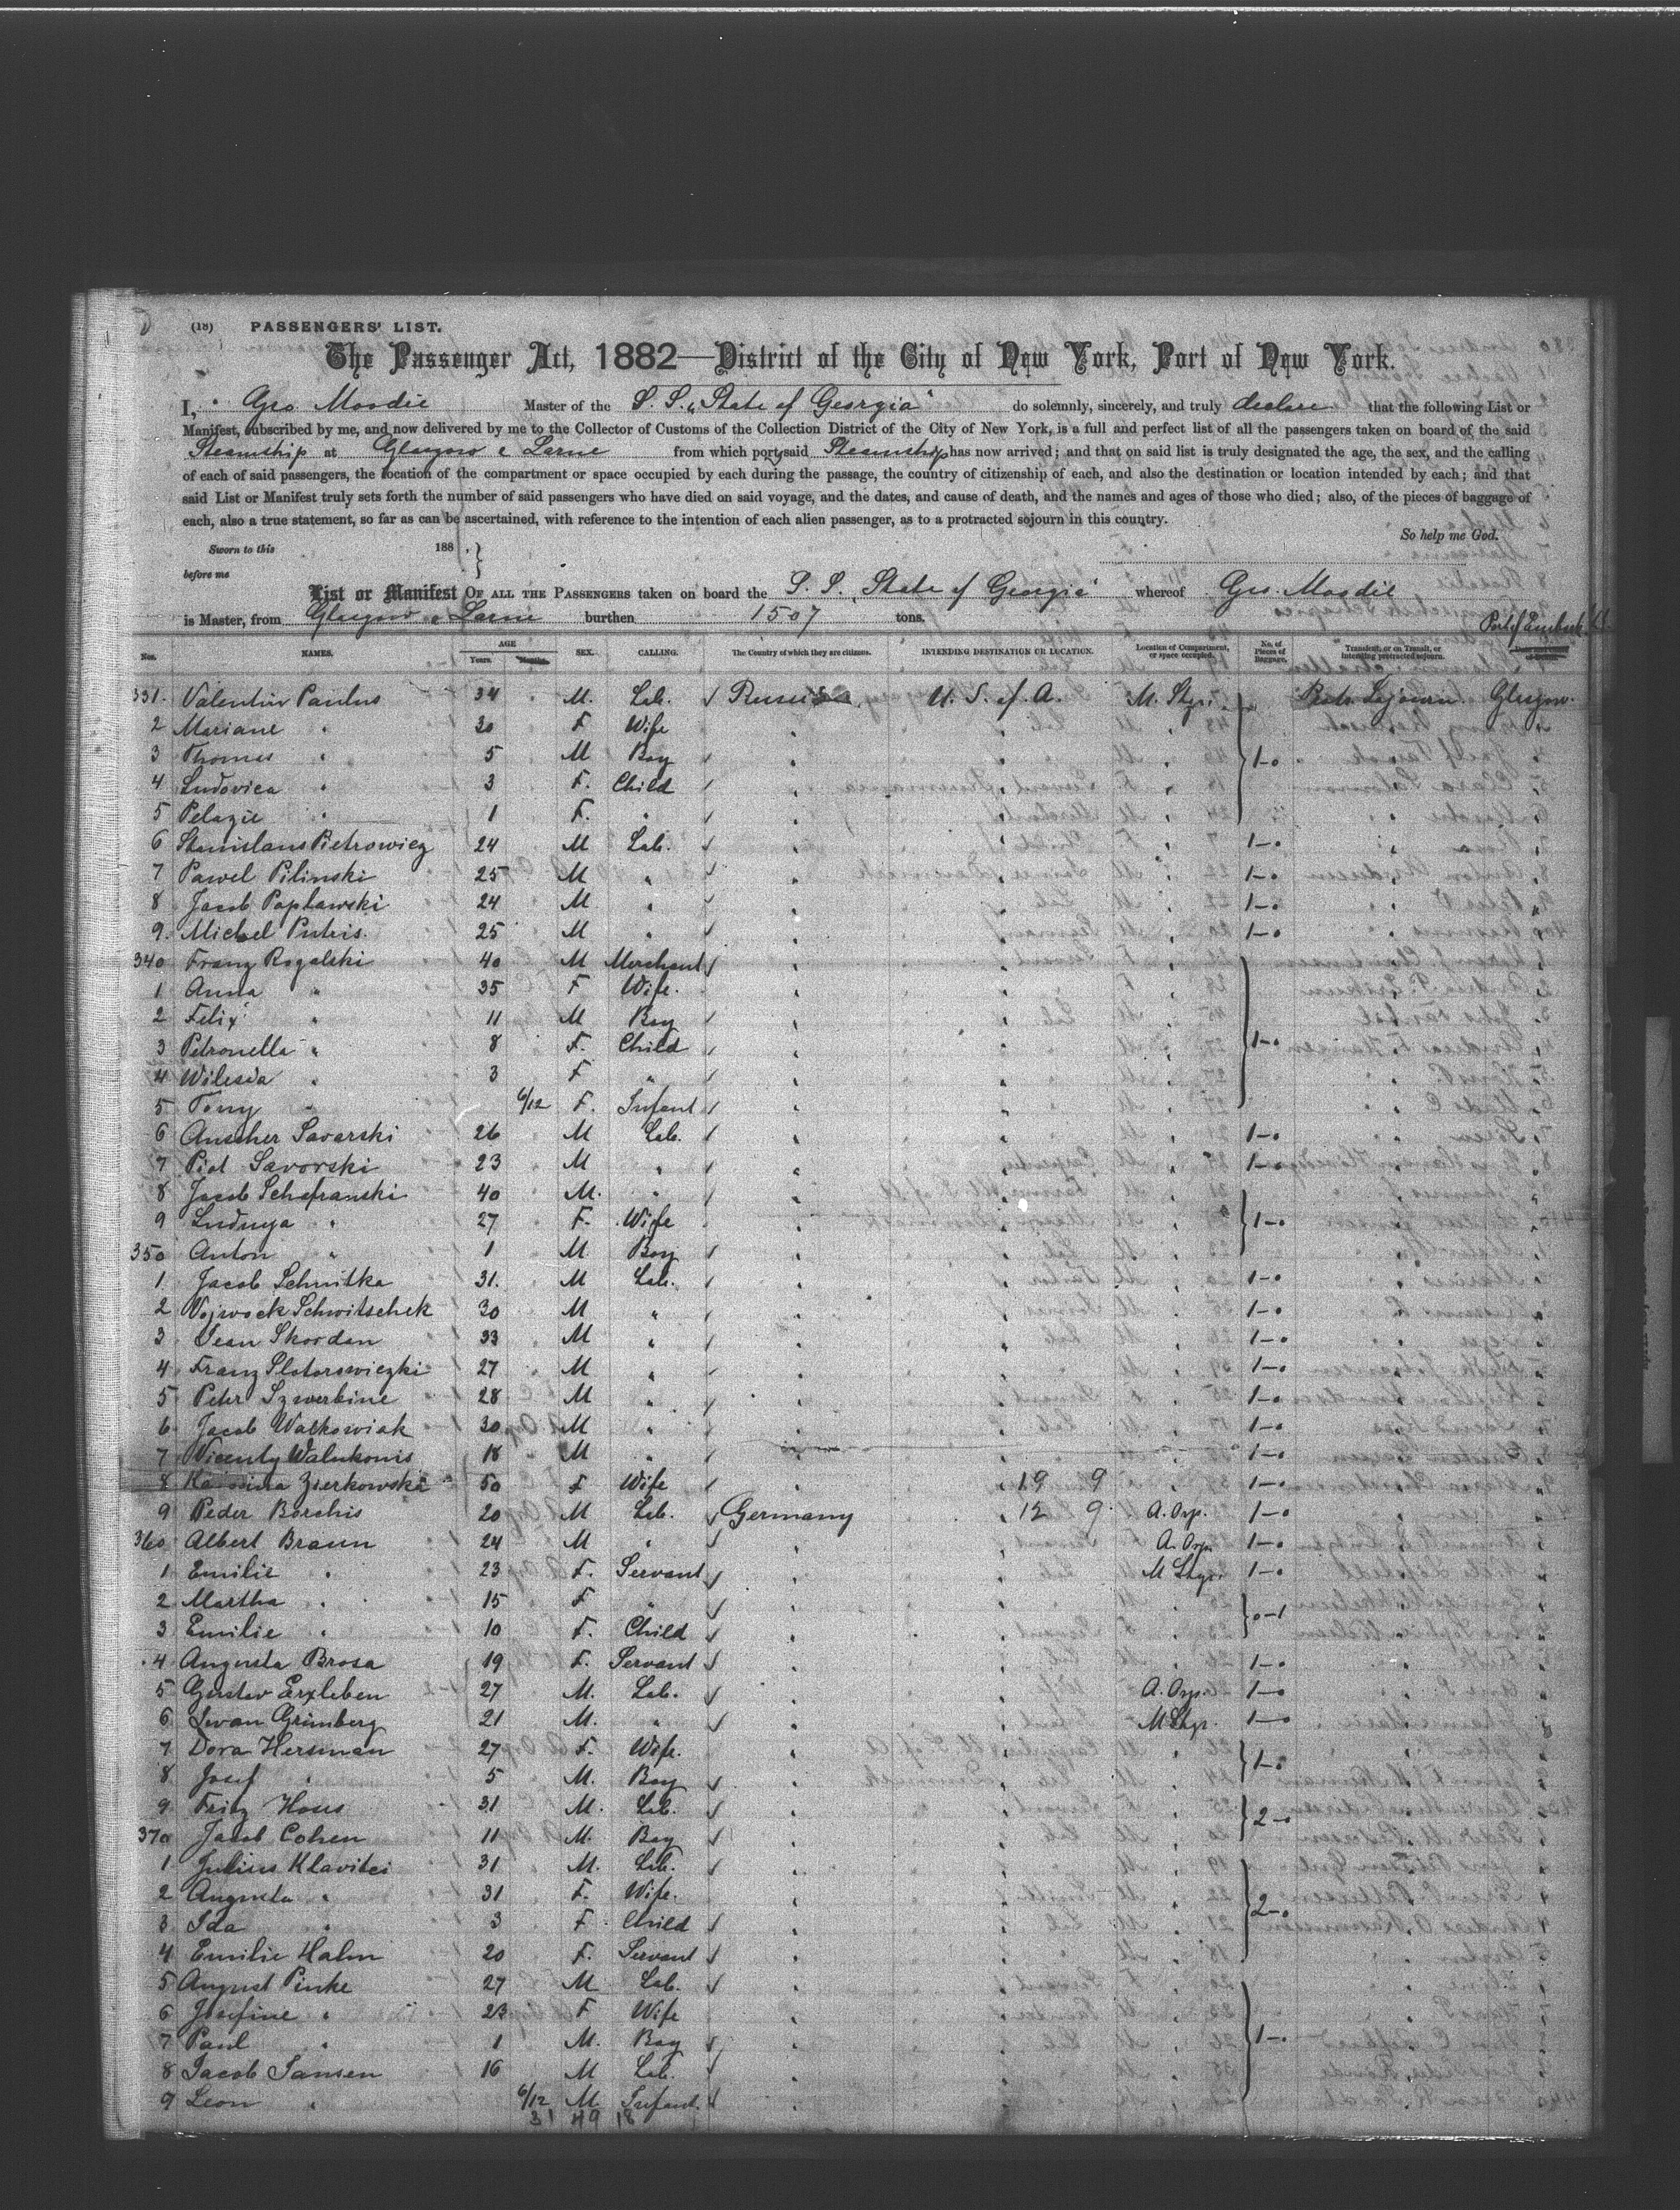 (18) PASSENGERS' LIST.
The Passenger Act, 1882—District of the City of New York, Port of New York.
I, Geo. Moodie Master of the S.S. "State of Georgia" do solemnly, sincerely, and truly declare that the following List or
Manifest, subscribed by me, and now delivered by me to the Collector of Customs of the Collection District of the City of New York, is a full and perfect list of all the passengers taken on board of the said
Steamship at Glasgow & Larne from which port said Steamship has now arrived; and that on said list is truly designated the age, the sex, and the calling
of each of said passengers, the location of the compartment or space occupied by each during the passage, the country of citizenship of each, and also the destination or location intended by each; and that
said List or Manifest truly sets forth the number of said passengers who have died on said voyage, and the dates, and cause of death, and the names and ages of those who died; also, of the pieces of baggage of
each, also a true statement, so far as can be ascertained, with reference to the intention of each alien passenger, as to a protracted sojourn in this country.
So help me God.
Sworn to this 188 .
before me
List or Manifest OF ALL THE PASSENGERS taken on board the S.S. "State of Georgia" whereof Geo. Moodie
is Master, from Glasgow & Larne burthen 1507 tons.
Port of Embark.
Nos. NAMES. AGE Years. Months. SEX. CALLING. The Country of which they are citizens. INTENDING DESTINATION OR LOCATION. Location of Compartment, or space occupied. No. of Pieces of Baggage. Transient, or on Transit, or intending protracted sojourn.
331. Valentin Paulus 34 M. Lab. Russia U. S. of A. M. Stge. Prot. Sojourn. Glasgow.
2 Mariane " 30 F Wife
3 Thomas " 5 M Boy 1-0
4 Ludovica " 3 F. Child
5 Pelazie " 1 F. "
6 Stanislaus Pietrowicz 24 M Lab. 1-0
7 Pawel Pilinski 25 M " 1-0
8 Jacob Poplawski 24 M " 1-0
9. Michel Putris. 25 M " 1-0
340 Franz Rogalski 40 M Merchant
1 Anna " 35 F Wife.
2 Felix " 11 M Boy
3 Petronella " 8 F. Child 1-0
4 Wilesia " 3 F "
5 Tony " 6/12 F. Infant
6 Anscher Savarski 26 M Lab. 1-0
7 Piot Savorski 23 M " 1-0
8 Jacob Schefranski 40 M. "
9 Luduya " 27 F. Wife 1-0
350 Anton " 1 M Boy
1 Jacob Schnitka 31. M Lab. 1-0
2 Wojwock Schwitschek 30 M " 1-0
3 Dean Skordan 33 M " 1-0
4 Franz Slotorowiczki 27 M " 1-0
5 Peter Szwerbine 28 M " 1-0
6 Jacob Walkowiak 30 M " 1-0
7 Vicenty Walukonis 18 M " 1-0
8 Zierkowska 50 F Wife 19 9 1-0
9 Peder Borchis 20 M Lab. Germany 12 9 A. Orp. 1-0
360 Albert Braun 24 M " A. Orp. 1-0
1 Emilie " 23 F. Servant M Stge. 1-0
2 Martha " 15 F "
3 Emilie " 10 F. Child 0-1
4 Augusta Brosa 19 F. Servant 1-0
5 Gustav Erxleben 27 M. Lab. A. Orp. 1-0
6 Iwan Grimberg 21 M. " M Stge. 1-0
7 Dora Hersman 27 F. Wife.
8 Josef " 5 M. Boy 1-0
9 Fritz Hous 31 M. Lab.
370 Jacob Cohen 11 M. Boy 2-0
1 Julius Klavitei 31 M. Lab.
2 Augusta " 31 F. Wife.
3 Ida " 3 F. Child 2-0
4 Emilie Halm 20 F. Servant
5 August Pinke 27 M Lab.
6 Josefine " 23 F Wife
7 Paul " 1 M. Boy 1-0
8 Jacob Jansen 16 M Lab.
9 Leon " 6/12 M. Infant.
31 49 18